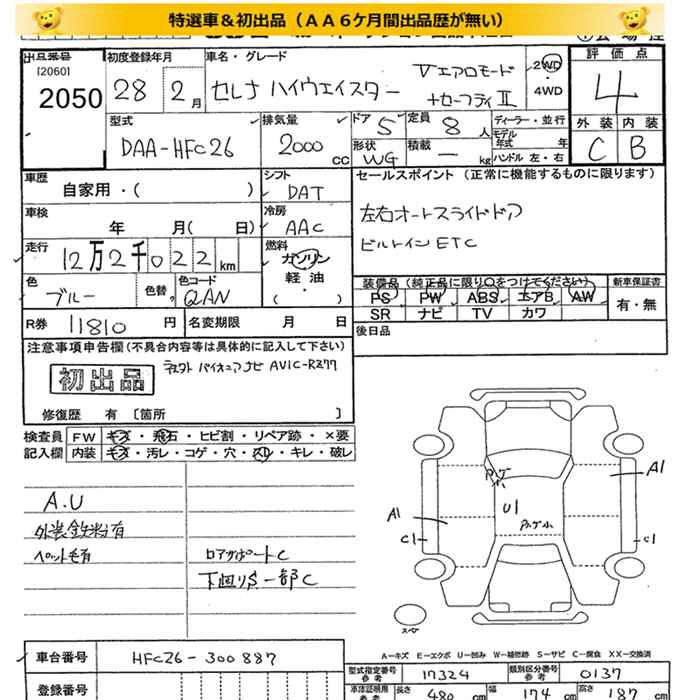 特選車＆初出品（ＡＡ６ケ月間出品歴が無い）
出品番号 初度登録年月 車名・グレード 評価点
[2060]
2050 28 2月 セレナ ハイウェイスター Vエアロモード +セーフティⅡ 2WD ・ 4WD 4
型式 排気量 ドア 定員 ディーラー・並行 外装 内装
DAA-HFC26 2000 CC 5 8人 モデル年式 年 C B
形状 積載
WG — kg ハンドル 左・右
車歴 シフト セールスポイント（正常に機能するものに限ります）
自家用・( ) DAT
車検 冷房 左右オートスライドドア
年 月( 日) AAC ビルトインETC
走行 燃料
12万2千022km ガソリン
軽油
・
( )
色 色替 色コード 装備品（純正品に限り○をつけてください） 新車保証書
ブルー QAN PS PW ABS エアB AW 有・無
SR ナビ TV カワ
R券 11810円 名変期限 月 日 後日品
注意事項申告欄(不具合内容等は具体的に記入して下さい)
初出品 パイオニアナビ AVIC-RZ77
修復歴 有 〔箇所 〕
検査員 FW キズ・飛石・ヒビ割・リペア跡・×要
記入欄 内装 キズ・汚レ・コゲ・穴・スレ・キレ・破レ
A.U
外装鉄粉有
ペット毛有
コアサポートC
下回りS一部C
A1
U1
A1
C1
C1
スペア
A－キズ E－エクボ U－凹み W－補修跡 S－サビ C－腐食 XX－交換済
車台番号 HFC26-300887
登録番号
型式指定番号 参考 17324 類別区分番号 参考 0137
車庫証明用 参考 長さ 480cm 幅 174cm 高さ 187cm